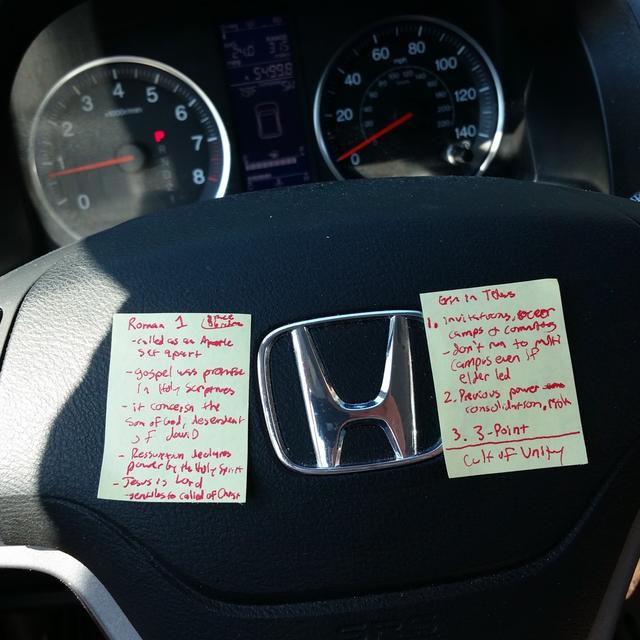 0
1
2
3
4
5
6
7
8
P
0
20
40
60
80
100
120
140
mph
Roman 1
- called as an Apostle
set apart
- gospel was promise
in Holy Scriptures
- it concersn the
Son of God, desendent
of david
- Ressurrection declares
power by the Holy Spirit
- Jesus is Lord
- gentiles to called of Christ
in
1. invitations,
camps or commuties
- don't run to multi
campus even if
elder led
2. Previous power
consolidation,
3. 3-Point
Cult of Unity